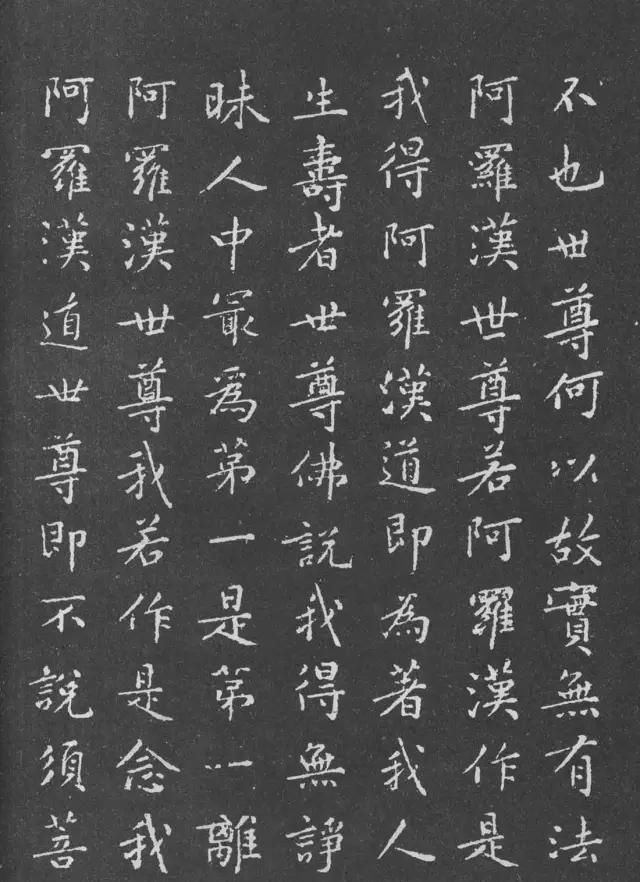 不也世尊何以故實無有法
阿羅漢世尊若阿羅漢作是
我得阿羅漢道即為著我人
生壽者世尊佛說我得無諍
昧人中冣為苐一是苐一離
阿羅漢世尊我若作是念我
阿羅漢道世尊即不說須菩